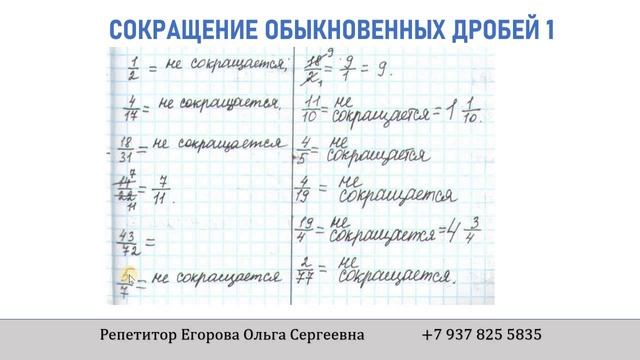 СОКРАЩЕНИЕ ОБЫКНОВЕННЫХ ДРОБЕЙ 1
1/2 = не сокращается;
4/17 = не сокращается.
18/31 = не сокращается
14/22 7 11 = 7/11.
43/72 =
5/7 = не сокращается
18/2 9 1 = 9/1 = 9.
11/10 = не сокращается = 1 1/10.
4/5 = не сокращается
4/19 = не сокращается
19/4 = не сокращается = 4 3/4
2/77 = не сокращается.
Репетитор Егорова Ольга Сергеевна +7 937 825 5835